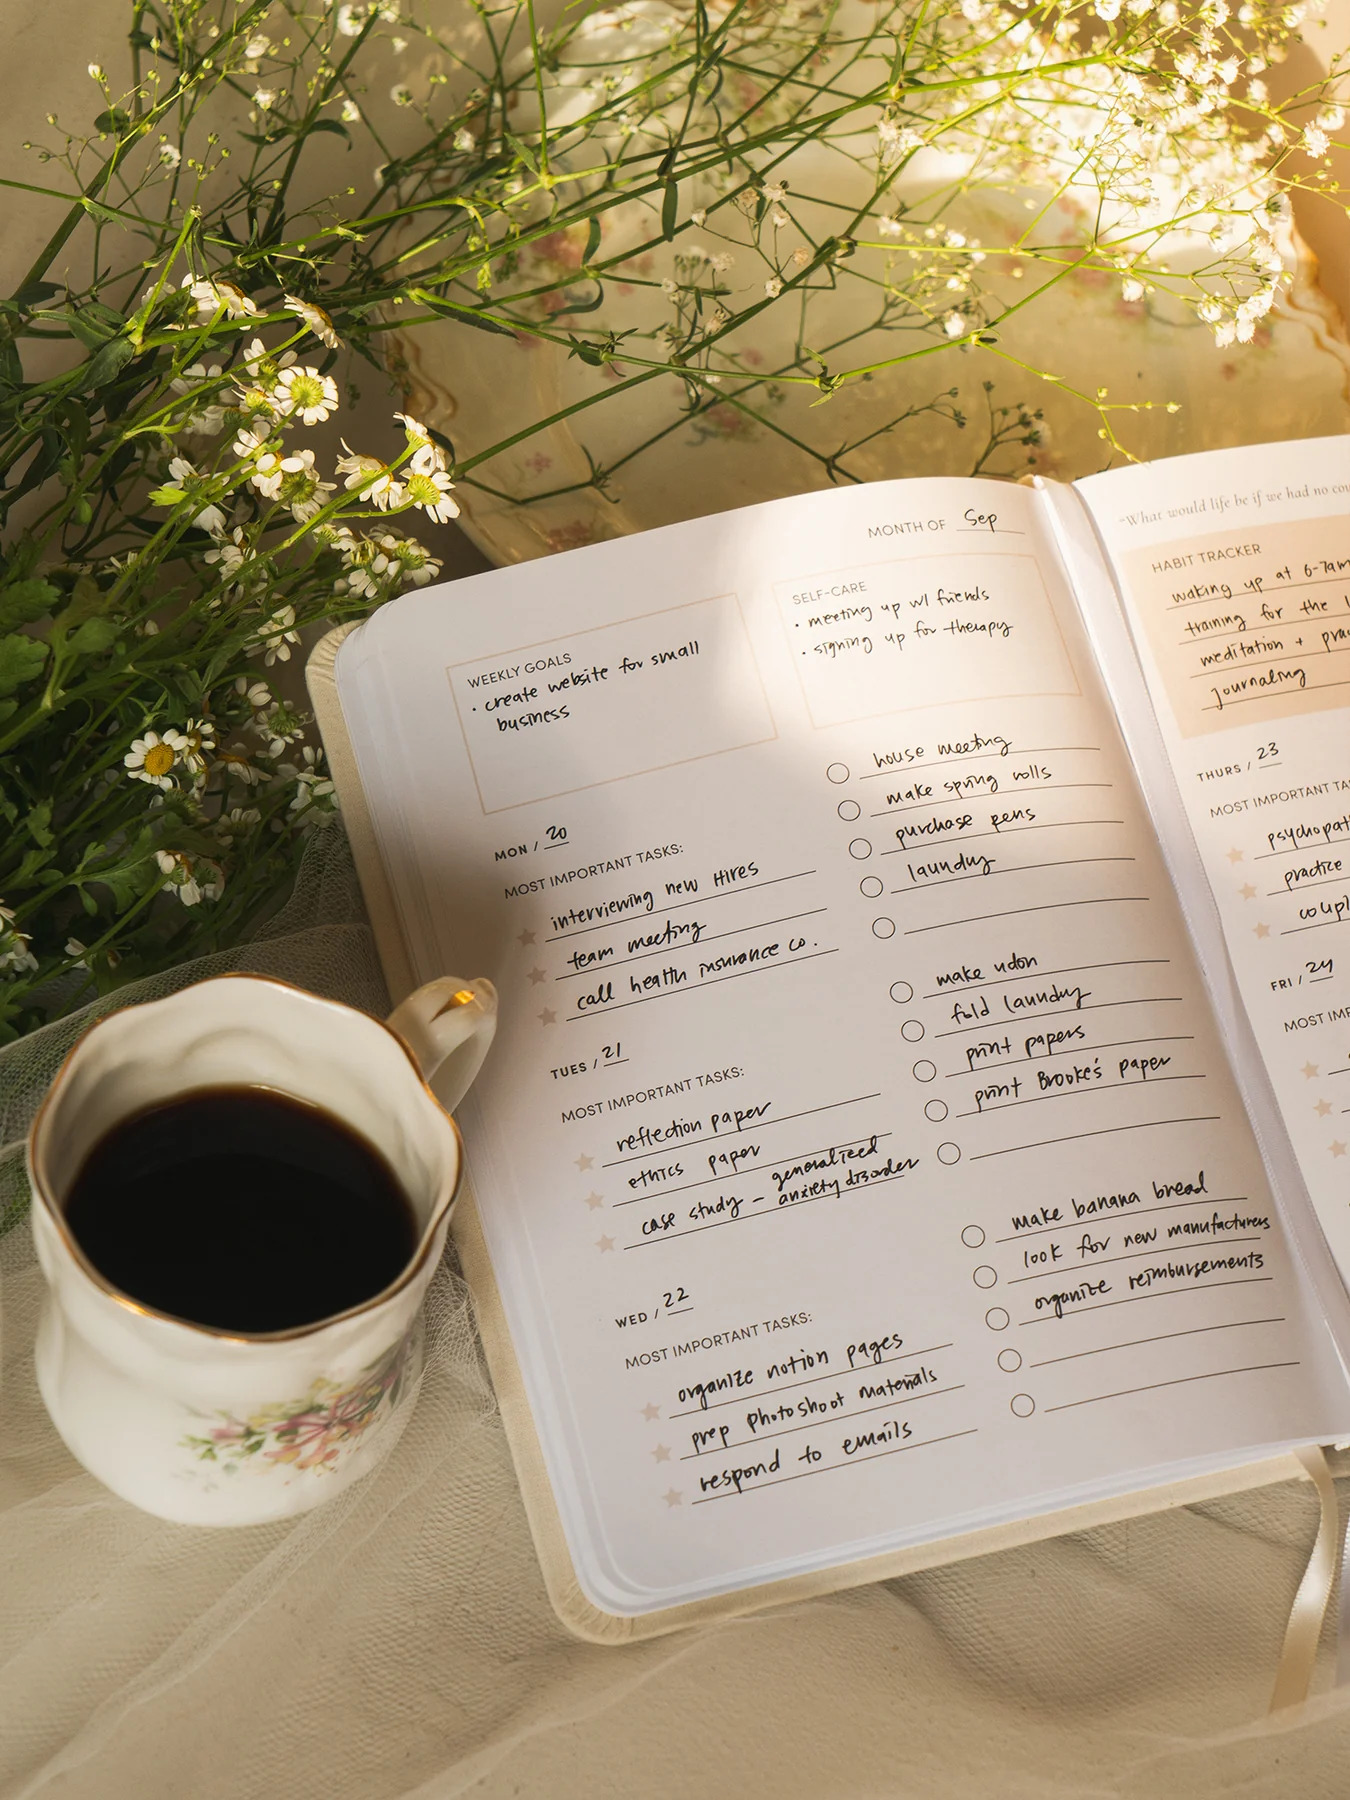 MONTH OF Sep
WEEKLY GOALS
• create website for small
business
SELF-CARE
• meeting up w/ friends
• signing up for therapy
MON / 20
MOST IMPORTANT TASKS:
interviewing new Hires
team meeting
call health insurance co.
house meeting
make spring rolls
purchase pens
laundry
TUES / 21
MOST IMPORTANT TASKS:
reflection paper
ethics paper
case study - generalized
anxiety disorder
make udon
fold laundry
print papers
print Brooke's paper
WED / 22
MOST IMPORTANT TASKS:
organize notion pages
prep photoshoot materials
respond to emails
make banana bread
look for new manufacturers
organize reimbursements
"What would life be if we had no
HABIT TRACKER
waking up at 6-7am
training for the
meditation +
journaling
THURS / 23
MOST IMPORTANT
practice
FRI / 24
MOST